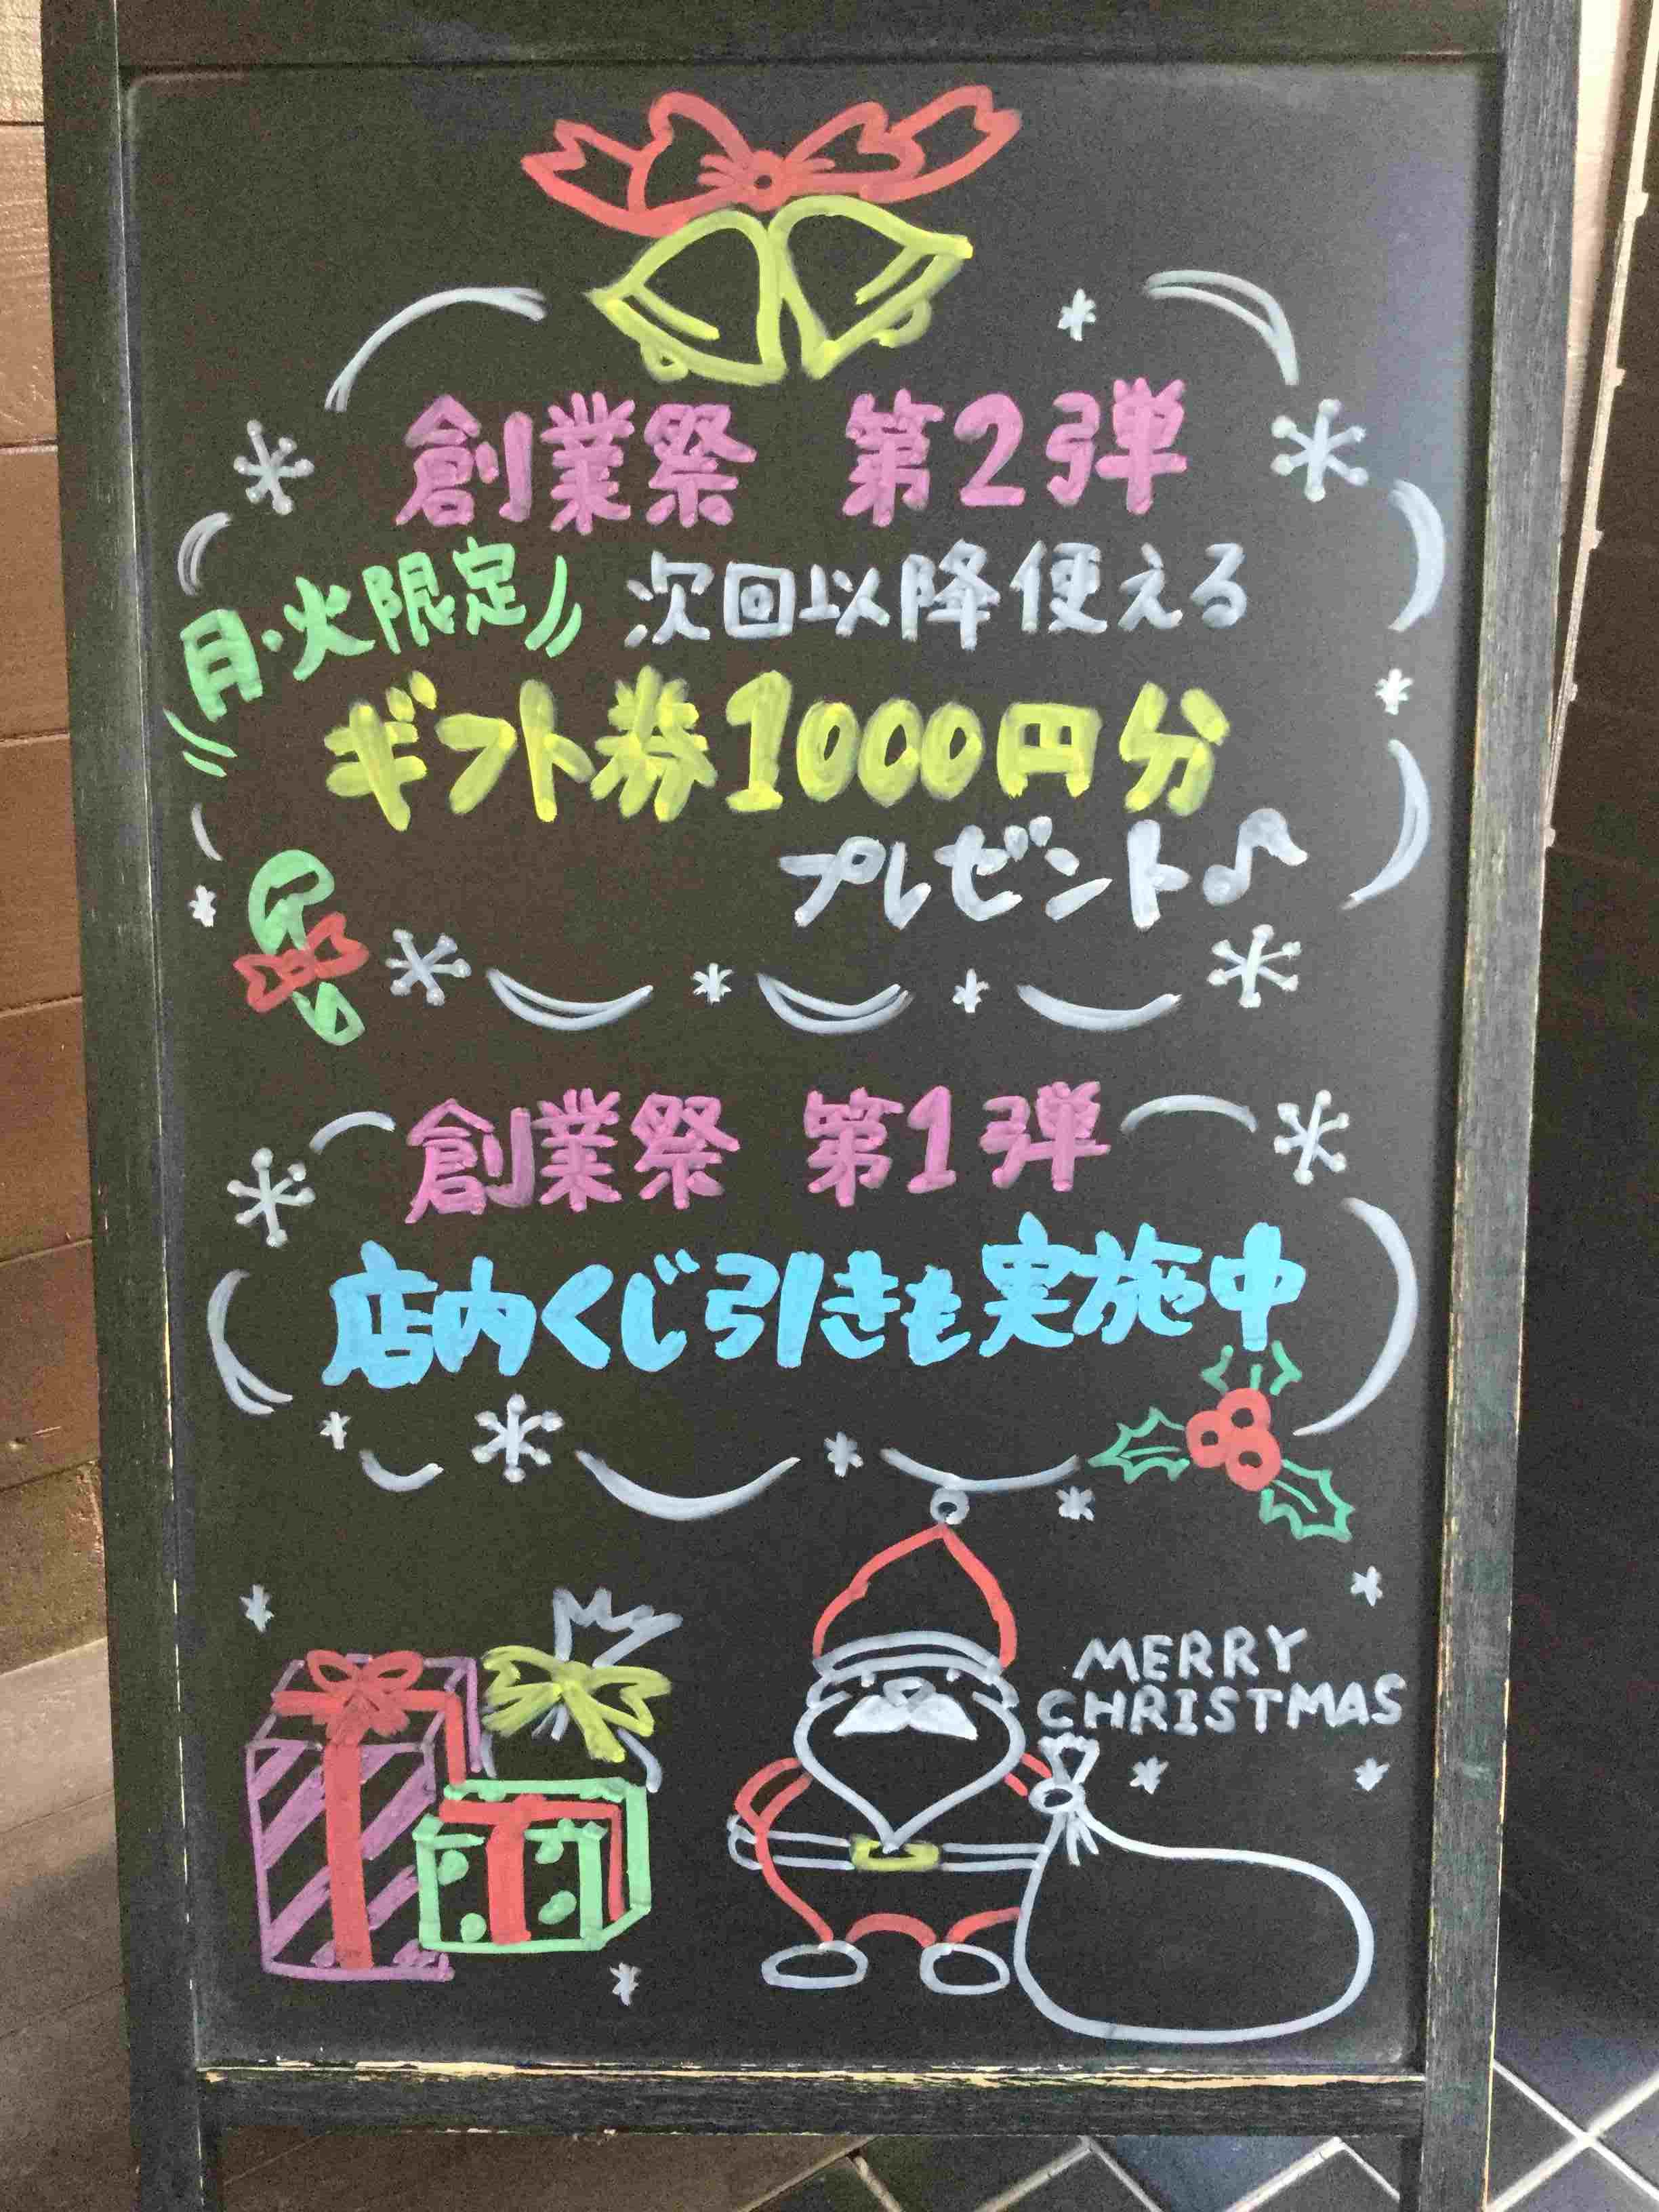 創業祭 第2弾
月・火限定 次回以降使える
ギフト券1000円分
プレゼント♪
創業祭 第1弾
店内くじ引きも実施中
MERRY
CHRISTMAS